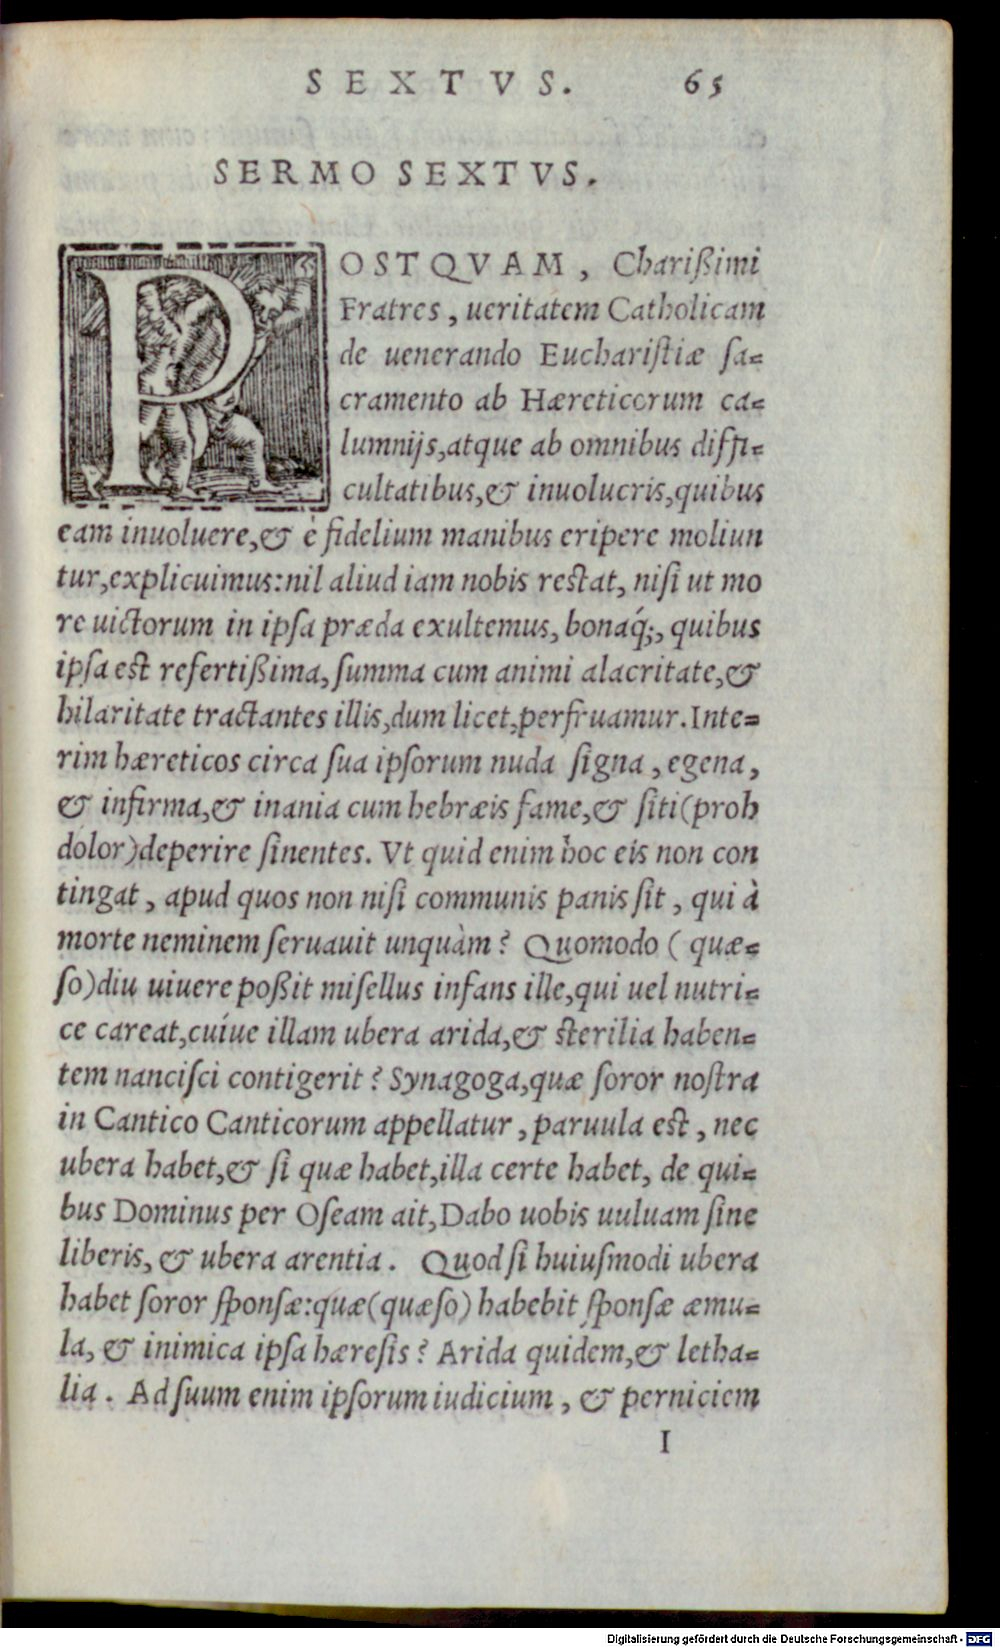 SEXTVS. 65
SERMO SEXTVS.
POSTQVAM, Charißimi
Fratres, ueritatem Catholicam
de uenerando Euchariſtiæ ſa=
cramento ab Hæreticorum ca=
lumnijs, atque ab omnibus diffi=
cultatibus, & inuolucris, quibus
eam inuoluere, & è fidelium manibus eripere moliun
tur, explicuimus: nil aliud iam nobis reſtat, niſi ut mo
re uictorum in ipſa præda exultemus, bonaq́;, quibus
ipſa eſt refertißima, ſumma cum animi alacritate, &
hilaritate tractantes illis, dum licet, perfruamur. Inte=
rim hæreticos circa ſua ipſorum nuda ſigna, egena,
& infirma, & inania cum hebræis fame, & ſiti (proh
dolor) deperire ſinentes. Vt quid enim hoc eis non con
tingat, apud quos non niſi communis panis ſit, qui à
morte neminem ſeruauit unquàm? Quomodo (quæ=
ſo) diu uiuere poßit miſellus infans ille, qui uel nutri=
ce careat, cuíue illam ubera arida, & ſterilia haben=
tem nanciſci contigerit? Synagoga, quæ ſoror noſtra
in Cantico Canticorum appellatur, paruula eſt, nec
ubera habet, & ſi quæ habet, illa certe habet, de qui=
bus Dominus per Oſeam ait, Dabo uobis uuluam ſine
liberis, & ubera arentia. Quod ſi huiuſmodi ubera
habet ſoror ſponſæ: quæ (quæſo) habebit ſponſæ æmu=
la, & inimica ipſa hæreſis? Arida quidem, & letha=
lia. Ad ſuum enim ipſorum iudicium, & perniciem
I
Digitalisierung gefördert durch die Deutsche Forschungsgemeinschaft - DFG